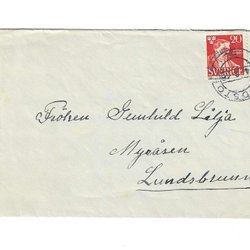 20
SVERIGE
Fröken Gunhild Lilja
Myråsen
Lundsbrunn